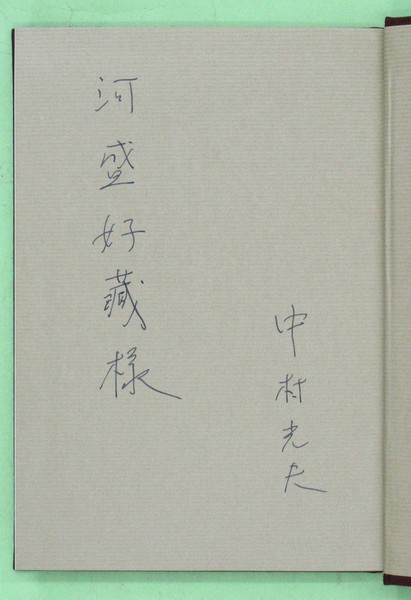 河盛好蔵様
中村光夫